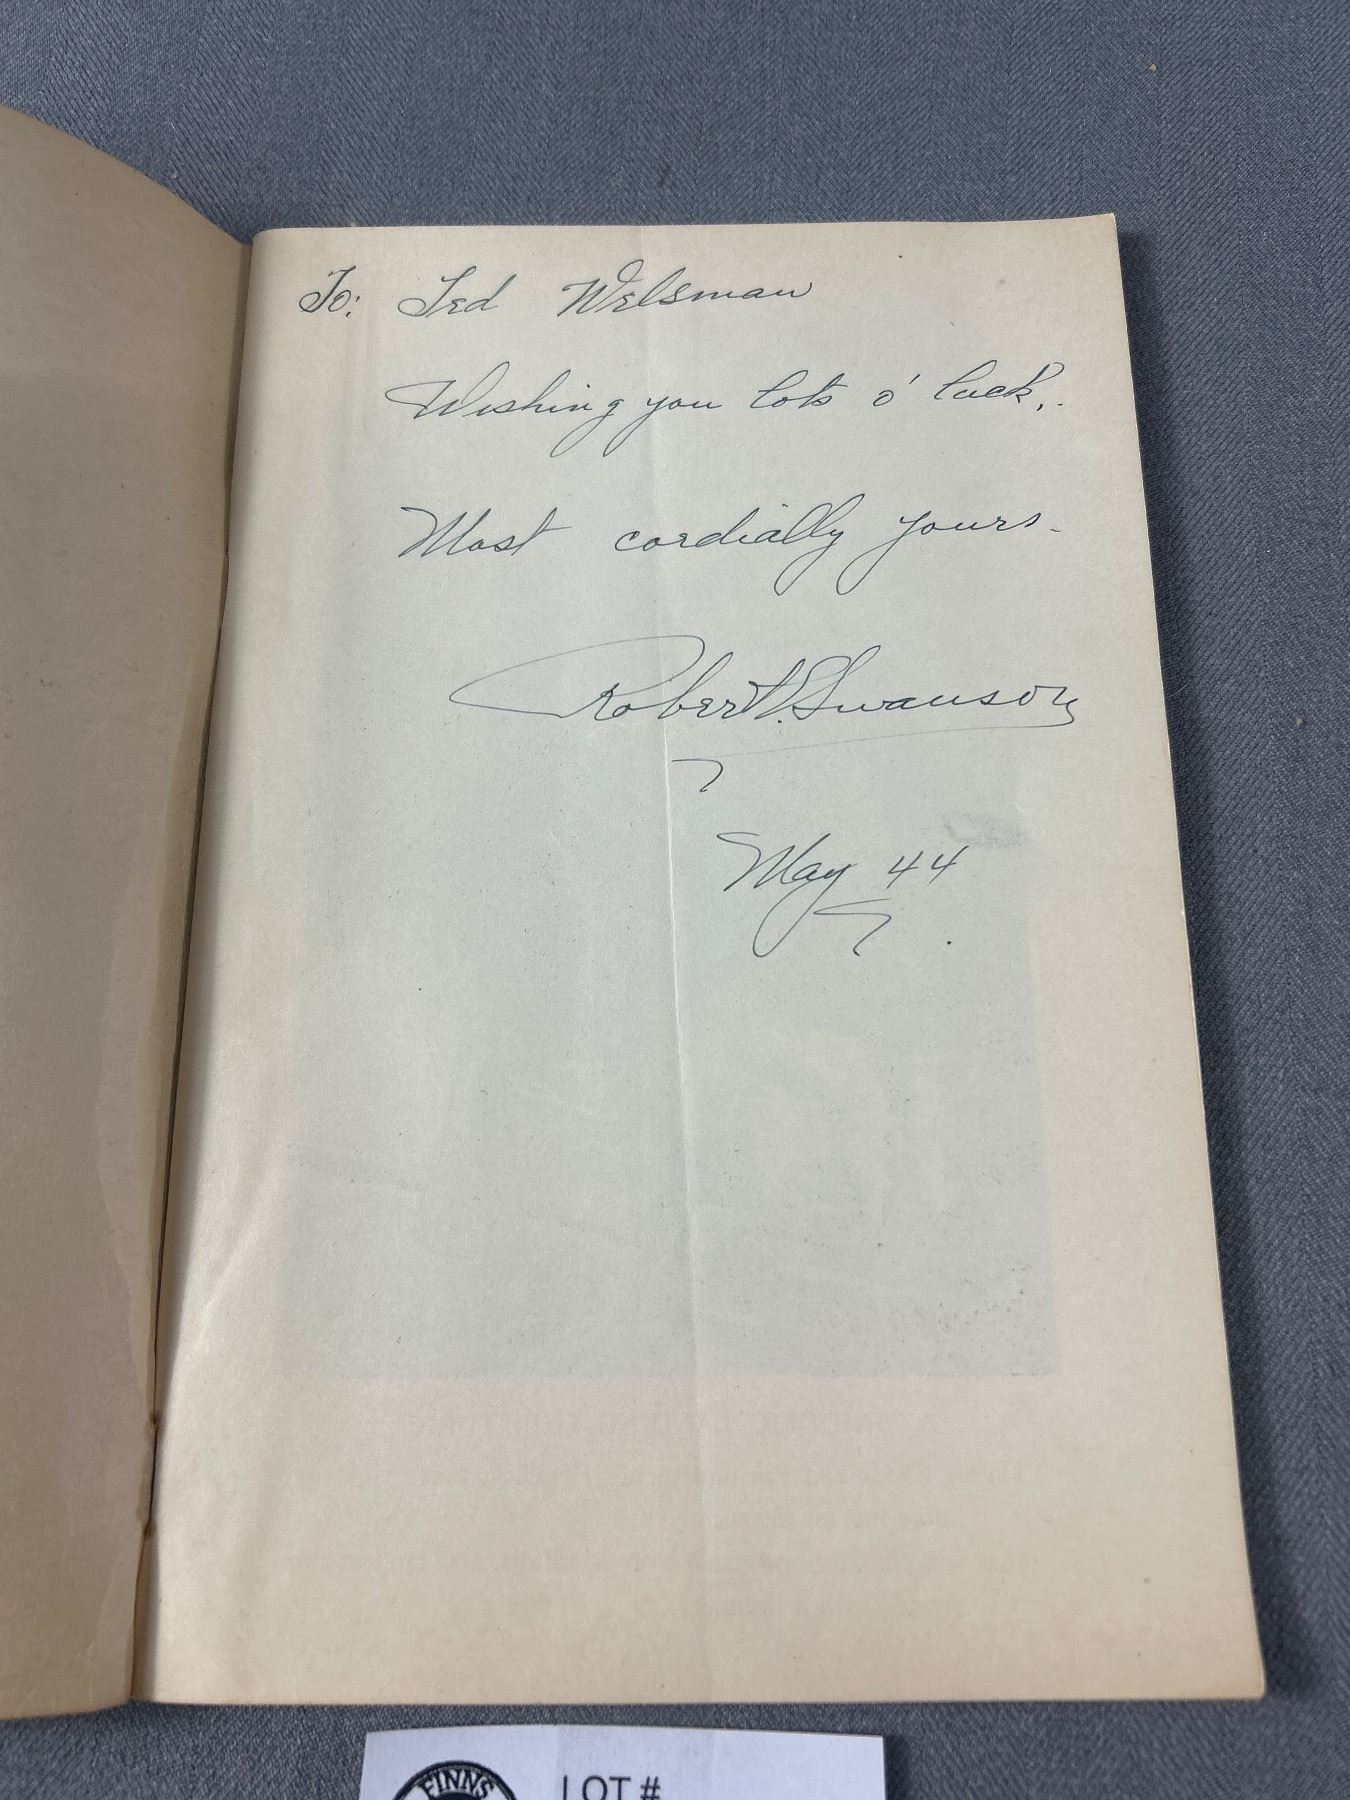 To: Ted Welsman
Wishing you lots o' luck,.
Most cordially yours-
Robert. Swanson
May 44
FINNS
LOT #